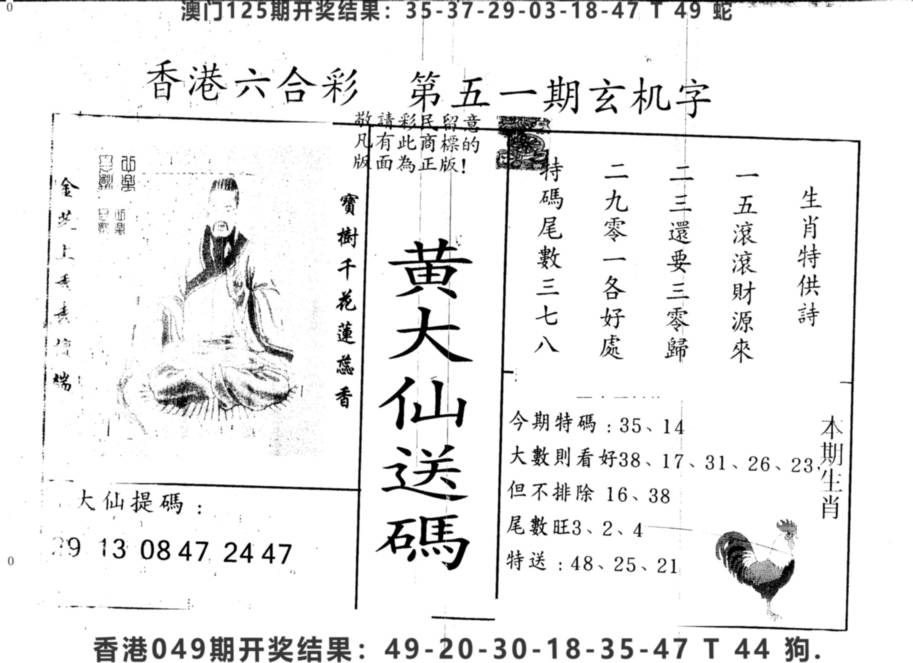 澳门125期开奖结果：35-37-29-03-18-47 T 49 蛇
香港六合彩 第五一期玄机字
敬請彩民留意
凡有此商標的
版面為正版!
寶樹千花蓮蕊香
黄大仙送碼
生肖特供詩
一五滚滚財源來
二三還要三零歸
二九零一各好處
特碼尾數三七八
今期特碼：35、14
大數則看好38、17、31、26、23,
但不排除 16、38
尾數旺3、2、4
特送：48、25、21
本期生肖
大仙提碼：
9 13 08 47 24 47
香港049期开奖结果：49-20-30-18-35-47 T 44 狗.